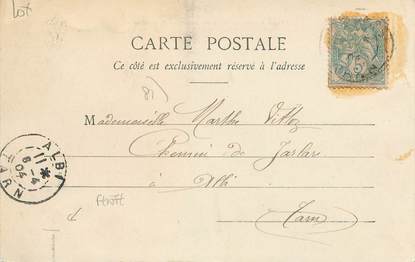 Lot
CARTE POSTALE
Ce côté est exclusivement réservé à l'adresse
81
Mademoiselle Marthe
Chemin de Jarlard
à Albi
Tarn
ALBI
11
6-4
04
TARN